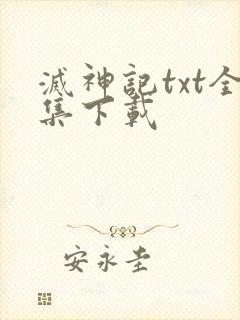 滅神記txt全
集下載
安永圭